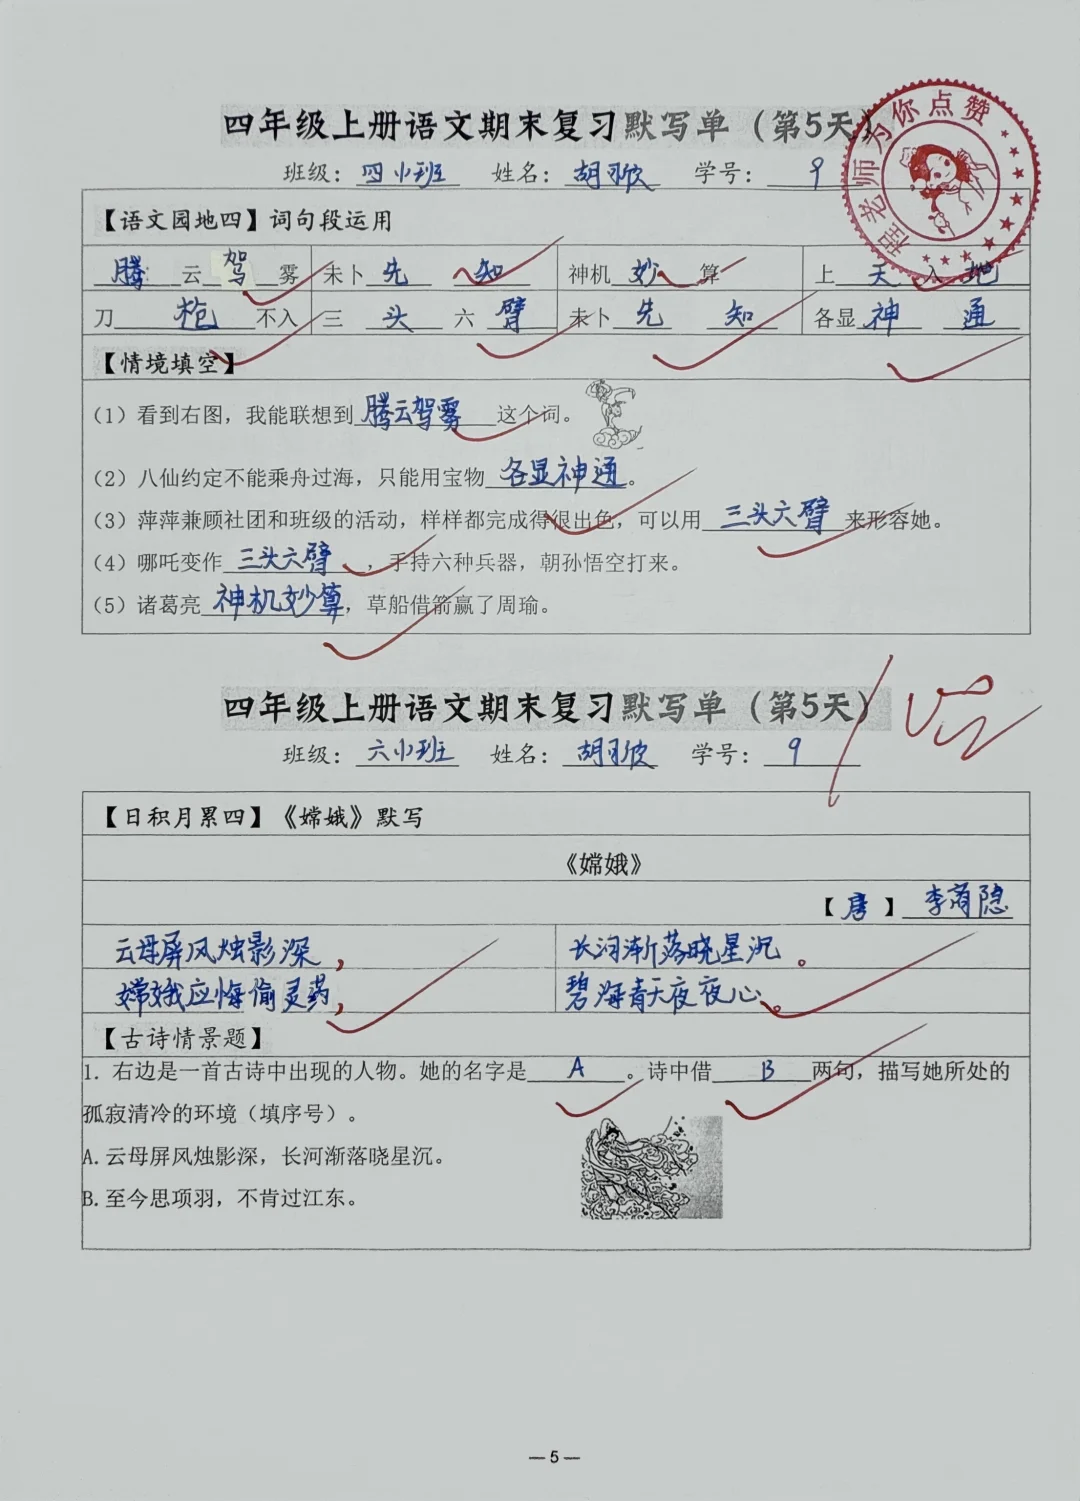 四年级上册语文期末复习默写单（第5天）
程老师为你点赞
班级：四小班 姓名：胡羽欣 学号：9
【语文园地四】词句段运用
腾云驾雾 未卜先知 神机妙算 上天入地
刀枪不入 三头六臂 未卜先知 各显神通
【情境填空】
（1）看到右图，我能联想到腾云驾雾这个词。
（2）八仙约定不能乘舟过海，只能用宝物各显神通。
（3）萍萍兼顾社团和班级的活动，样样都完成得很出色，可以用三头六臂来形容她。
（4）哪吒变作三头六臂，手持六种兵器，朝孙悟空打来。
（5）诸葛亮神机妙算，草船借箭赢了周瑜。
四年级上册语文期末复习默写单（第5天）
班级：六小班 姓名：胡羽欣 学号：9
【日积月累四】《嫦娥》默写
《嫦娥》
【唐】李商隐
云母屏风烛影深， 长河渐落晓星沉。
嫦娥应悔偷灵药， 碧海青天夜夜心。
【古诗情景题】
1. 右边是一首古诗中出现的人物。她的名字是A。诗中借B两句，描写她所处的
孤寂清冷的环境（填序号）。
A. 云母屏风烛影深，长河渐落晓星沉。
B. 至今思项羽，不肯过江东。
— 5 —